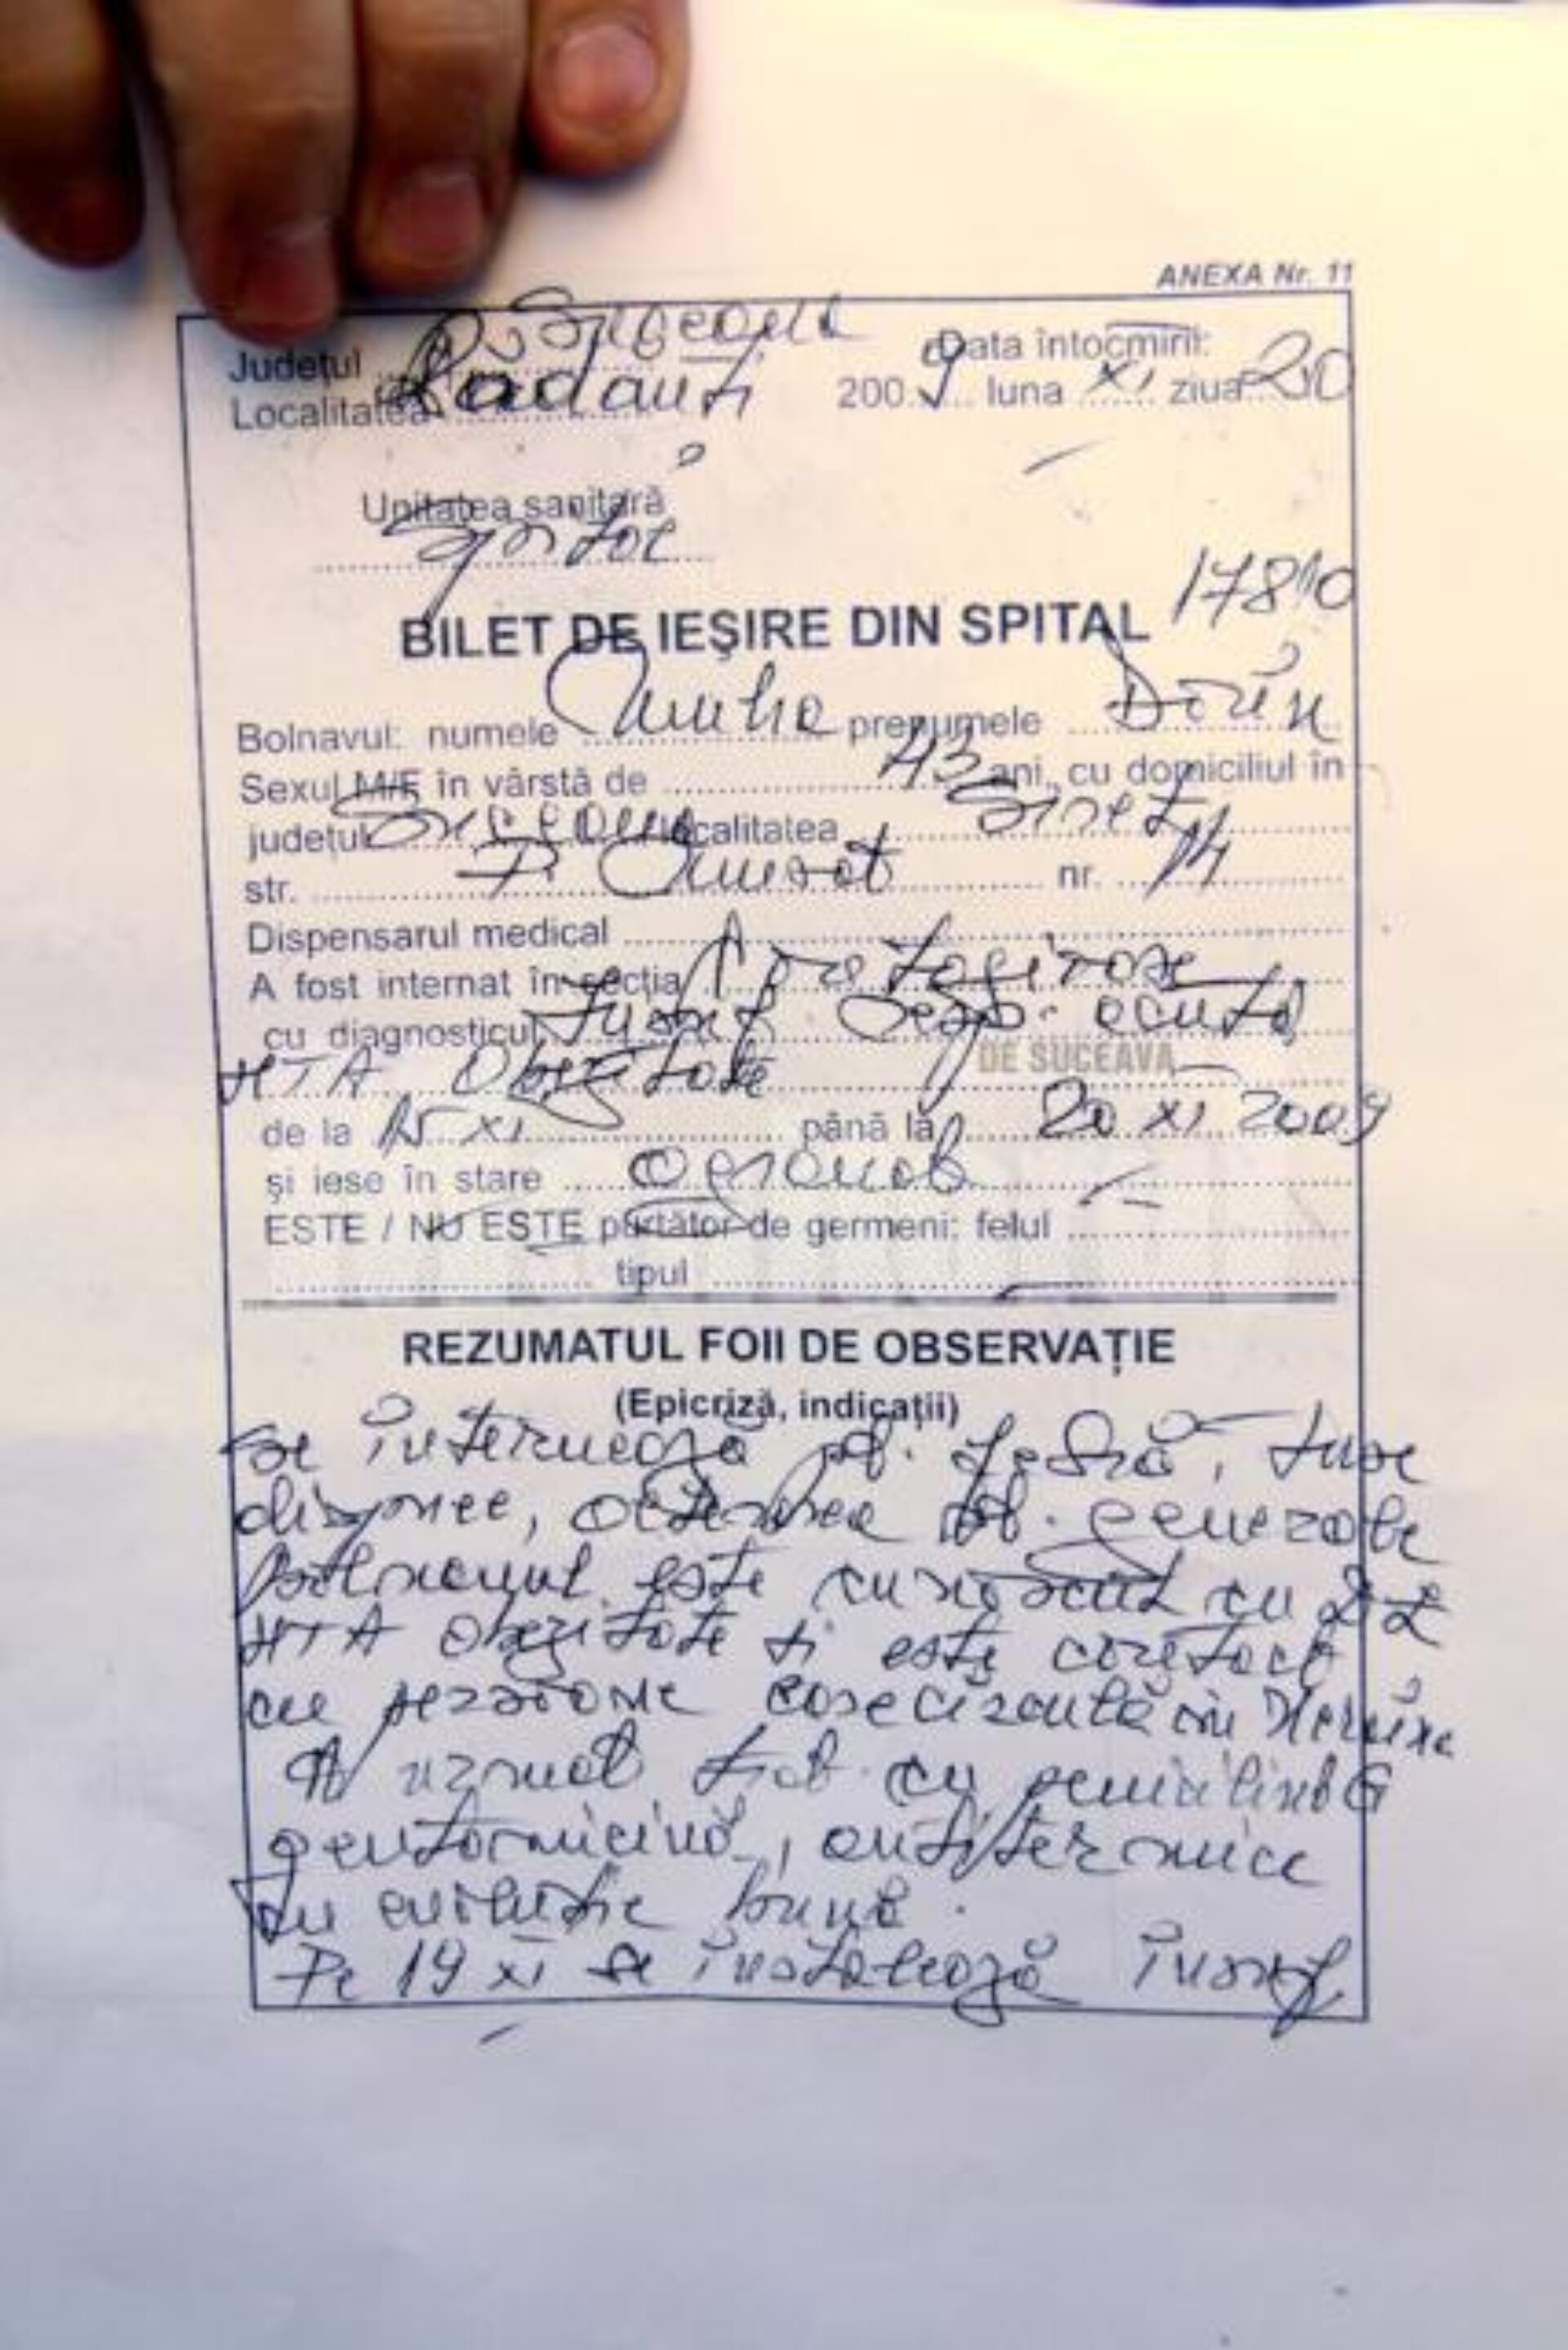 ANEXA Nr. 11
Județul Suceava Data întocmirii:
Localitatea Radauți 2009 luna XI ziua 20
Unitatea sanitară
17810
BILET DE IEŞIRE DIN SPITAL
Bolnavul: numele prenumele Dorin
Sexul M/F în vârstă de 43 ani, cu domiciliul în
județul Suceava localitatea Siret
str. nr. 14
Dispensarul medical
A fost internat în secția
cu diagnosticul Insuf resp. acuta
DE SUCEAVA
HTA Obezitate
de la 15 XI până la 20 XI 2009
şi iese în stare
ESTE / NU ESTE purtător de germeni: felul
tipul
REZUMATUL FOII DE OBSERVAȚIE
(Epicriză, indicații)
se internează pt. febră, tuse
dispnee, pt. generale
este cunoscut cu
HTA obezitate și este contact
cu persoane
A urmat trat. cu penicilină G
gentamicină, antitermice
cu evoluție bună.
Pe 19 XI se instalează insuf.